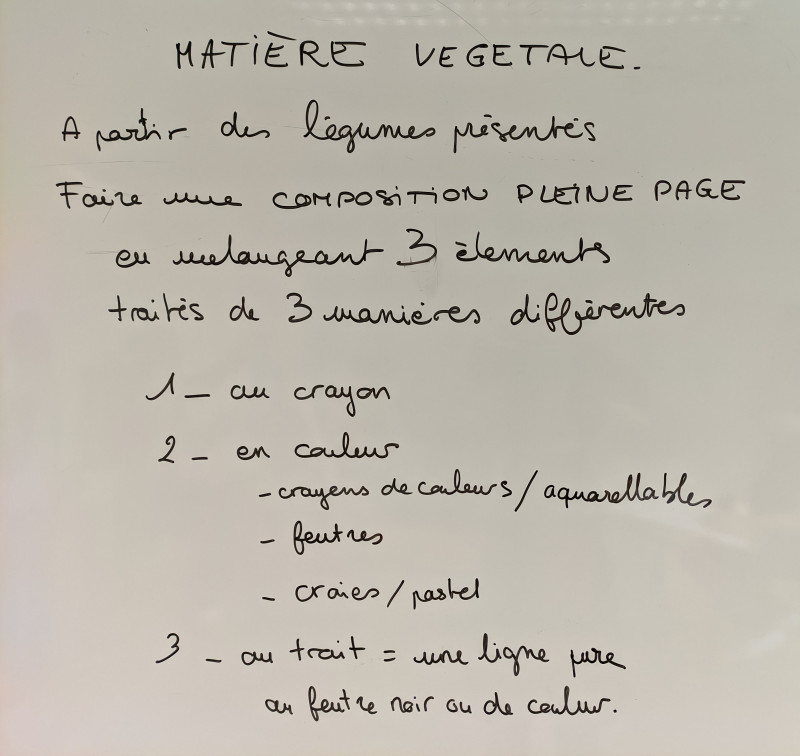 MATIÈRE VEGETALE.
A partir des légumes présentés
Faire une COMPOSITION PLEINE PAGE
en melangeant 3 élements
traités de 3 manières différentes
1 - au crayon
2 - en couleur
- crayens de couleurs / aquarellables
- feutres
- craies / pastel
3 - au trait = une ligne pure
au feutre noir ou de couleur.